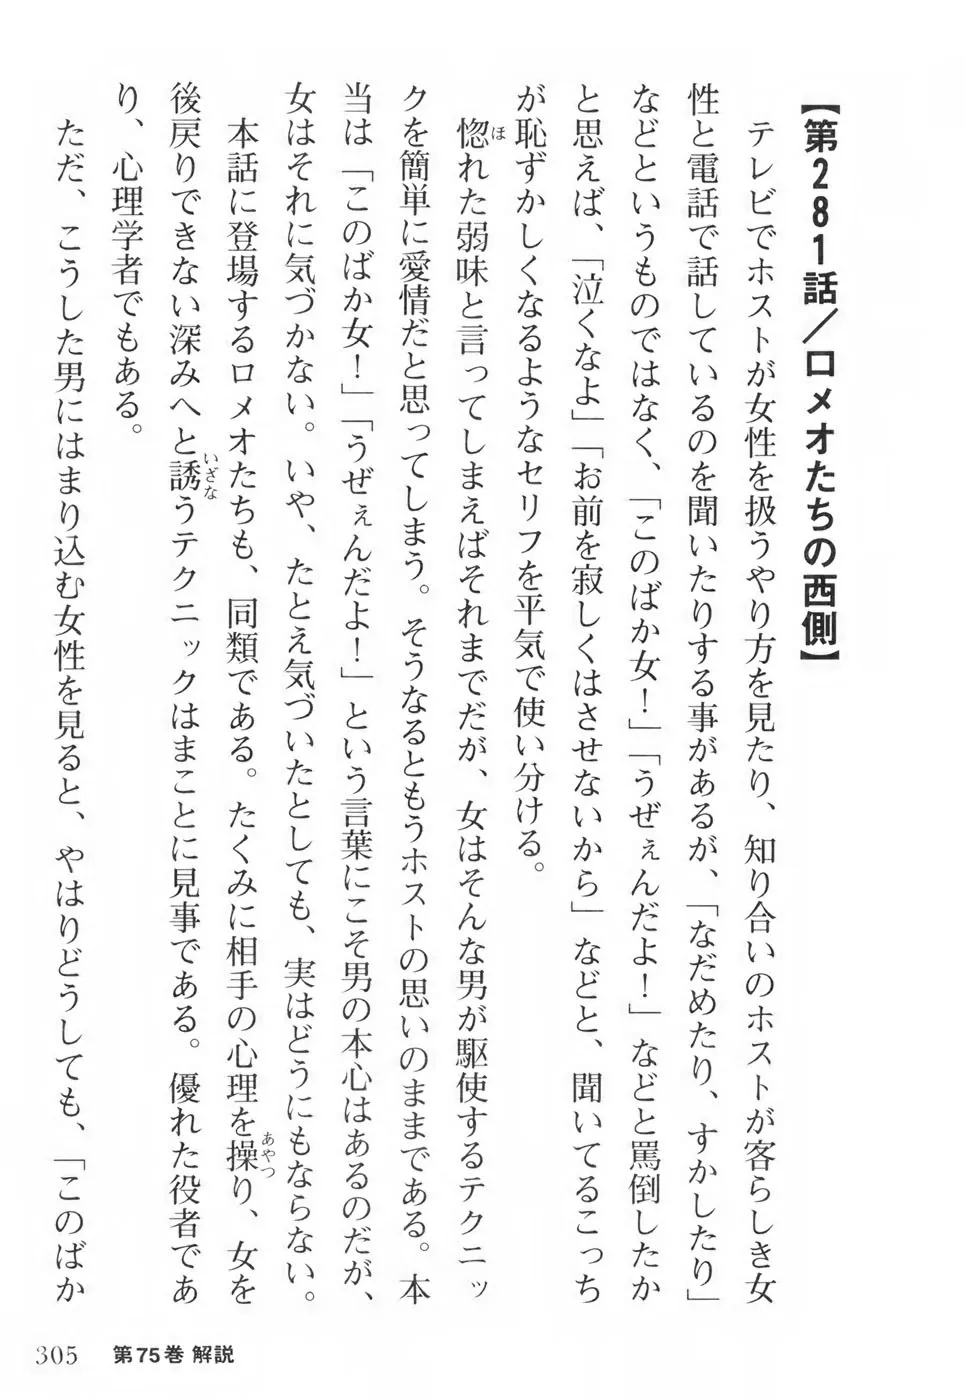 【第281話／ロメオたちの西側】
テレビでホストが女性を扱うやり方を見たり、知り合いのホストが客らしき女
性と電話で話しているのを聞いたりする事があるが、「なだめたり、すかしたり」
などというものではなく、「このばか女！」「うぜぇんだよ！」などと罵倒したか
と思えば、「泣くなよ」「お前を寂しくはさせないから」などと、聞いてるこっち
が恥ずかしくなるようなセリフを平気で使い分ける。
惚れた弱味と言ってしまえばそれまでだが、女はそんな男が駆使するテクニッ
クを簡単に愛情だと思ってしまう。そうなるともうホストの思いのままである。本
当は「このばか女！」「うぜぇんだよ！」という言葉にこそ男の本心はあるのだが、
女はそれに気づかない。いや、たとえ気づいたとしても、実はどうにもならない。
本話に登場するロメオたちも、同類である。たくみに相手の心理を操り、女を
後戻りできない深みへと誘うテクニックはまことに見事である。優れた役者であ
り、心理学者でもある。
ただ、こうした男にはまり込む女性を見ると、やはりどうしても、「このばか
305 第75巻 解説